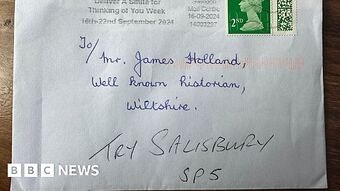 Deliver A Smile for
Thinking of You Week
16th-22nd September 2024
Mail Centre
16-09-2024
14003297
2ND
To/
Mr. James Holland,
Well known Historian,
Wiltshire.
TRY SALISBURY
SP5
BBC NEWS